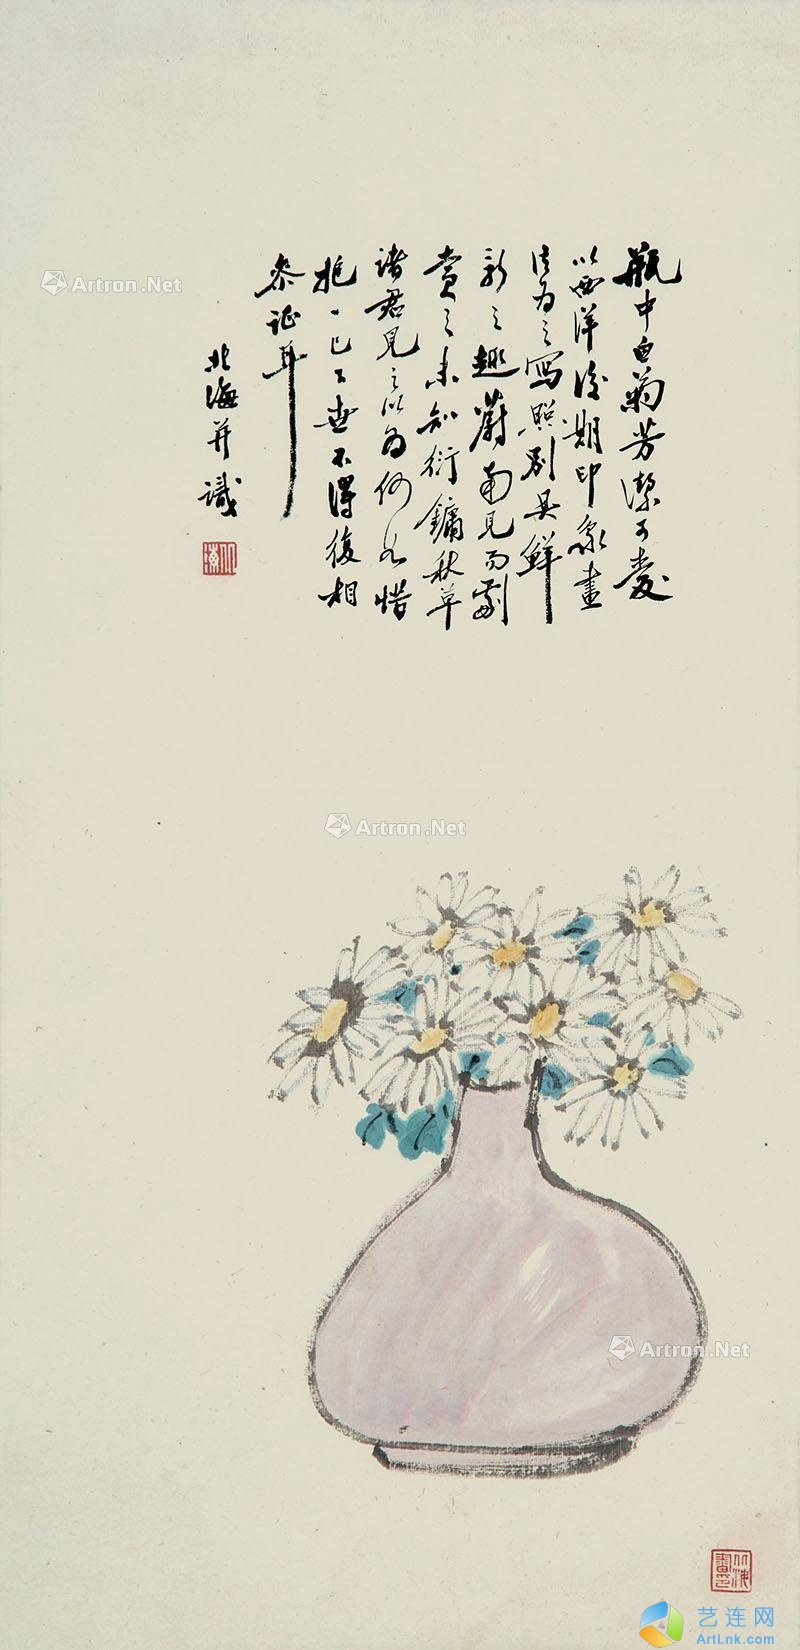 瓶中白菊芳潔可愛
以西洋後期印象畫
法為之寫照別具鮮
新之趣蔚南見而劇
賞之未知衍鏞秋草
諸君見之以為何如惜
抱一已下世不得復相
參証耳
北海并識
Artron.Net
Artron.Net
Artron.Net
艺连网
ArtLnk.com